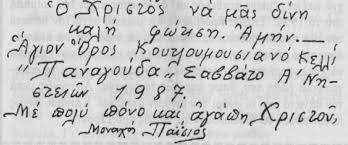 Ὁ Χριστός νά μᾶς δίνη
καλή φώτιση. Ἀμήν.—
Ἅγιον Ὄρος Κουτλουμουσιανό Κελλί
"Παναγούδα" Σάββατο Α΄ Νη-
στειῶν 1987.
Μέ πολύ πόνο καί ἀγάπη Χριστοῦ,
Μοναχός Παΐσιος